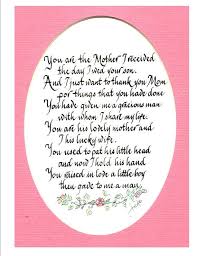 You are the Mother I received
the day I wed your son.
And I just want to thank you Mom
for things that you have done
You have given me a gracious man
with whom I share my life.
You are his lovely mother and
I his lucky wife.
You used to pat his little head
and now I hold his hand
You raised in love a little boy
then gave to me a man.